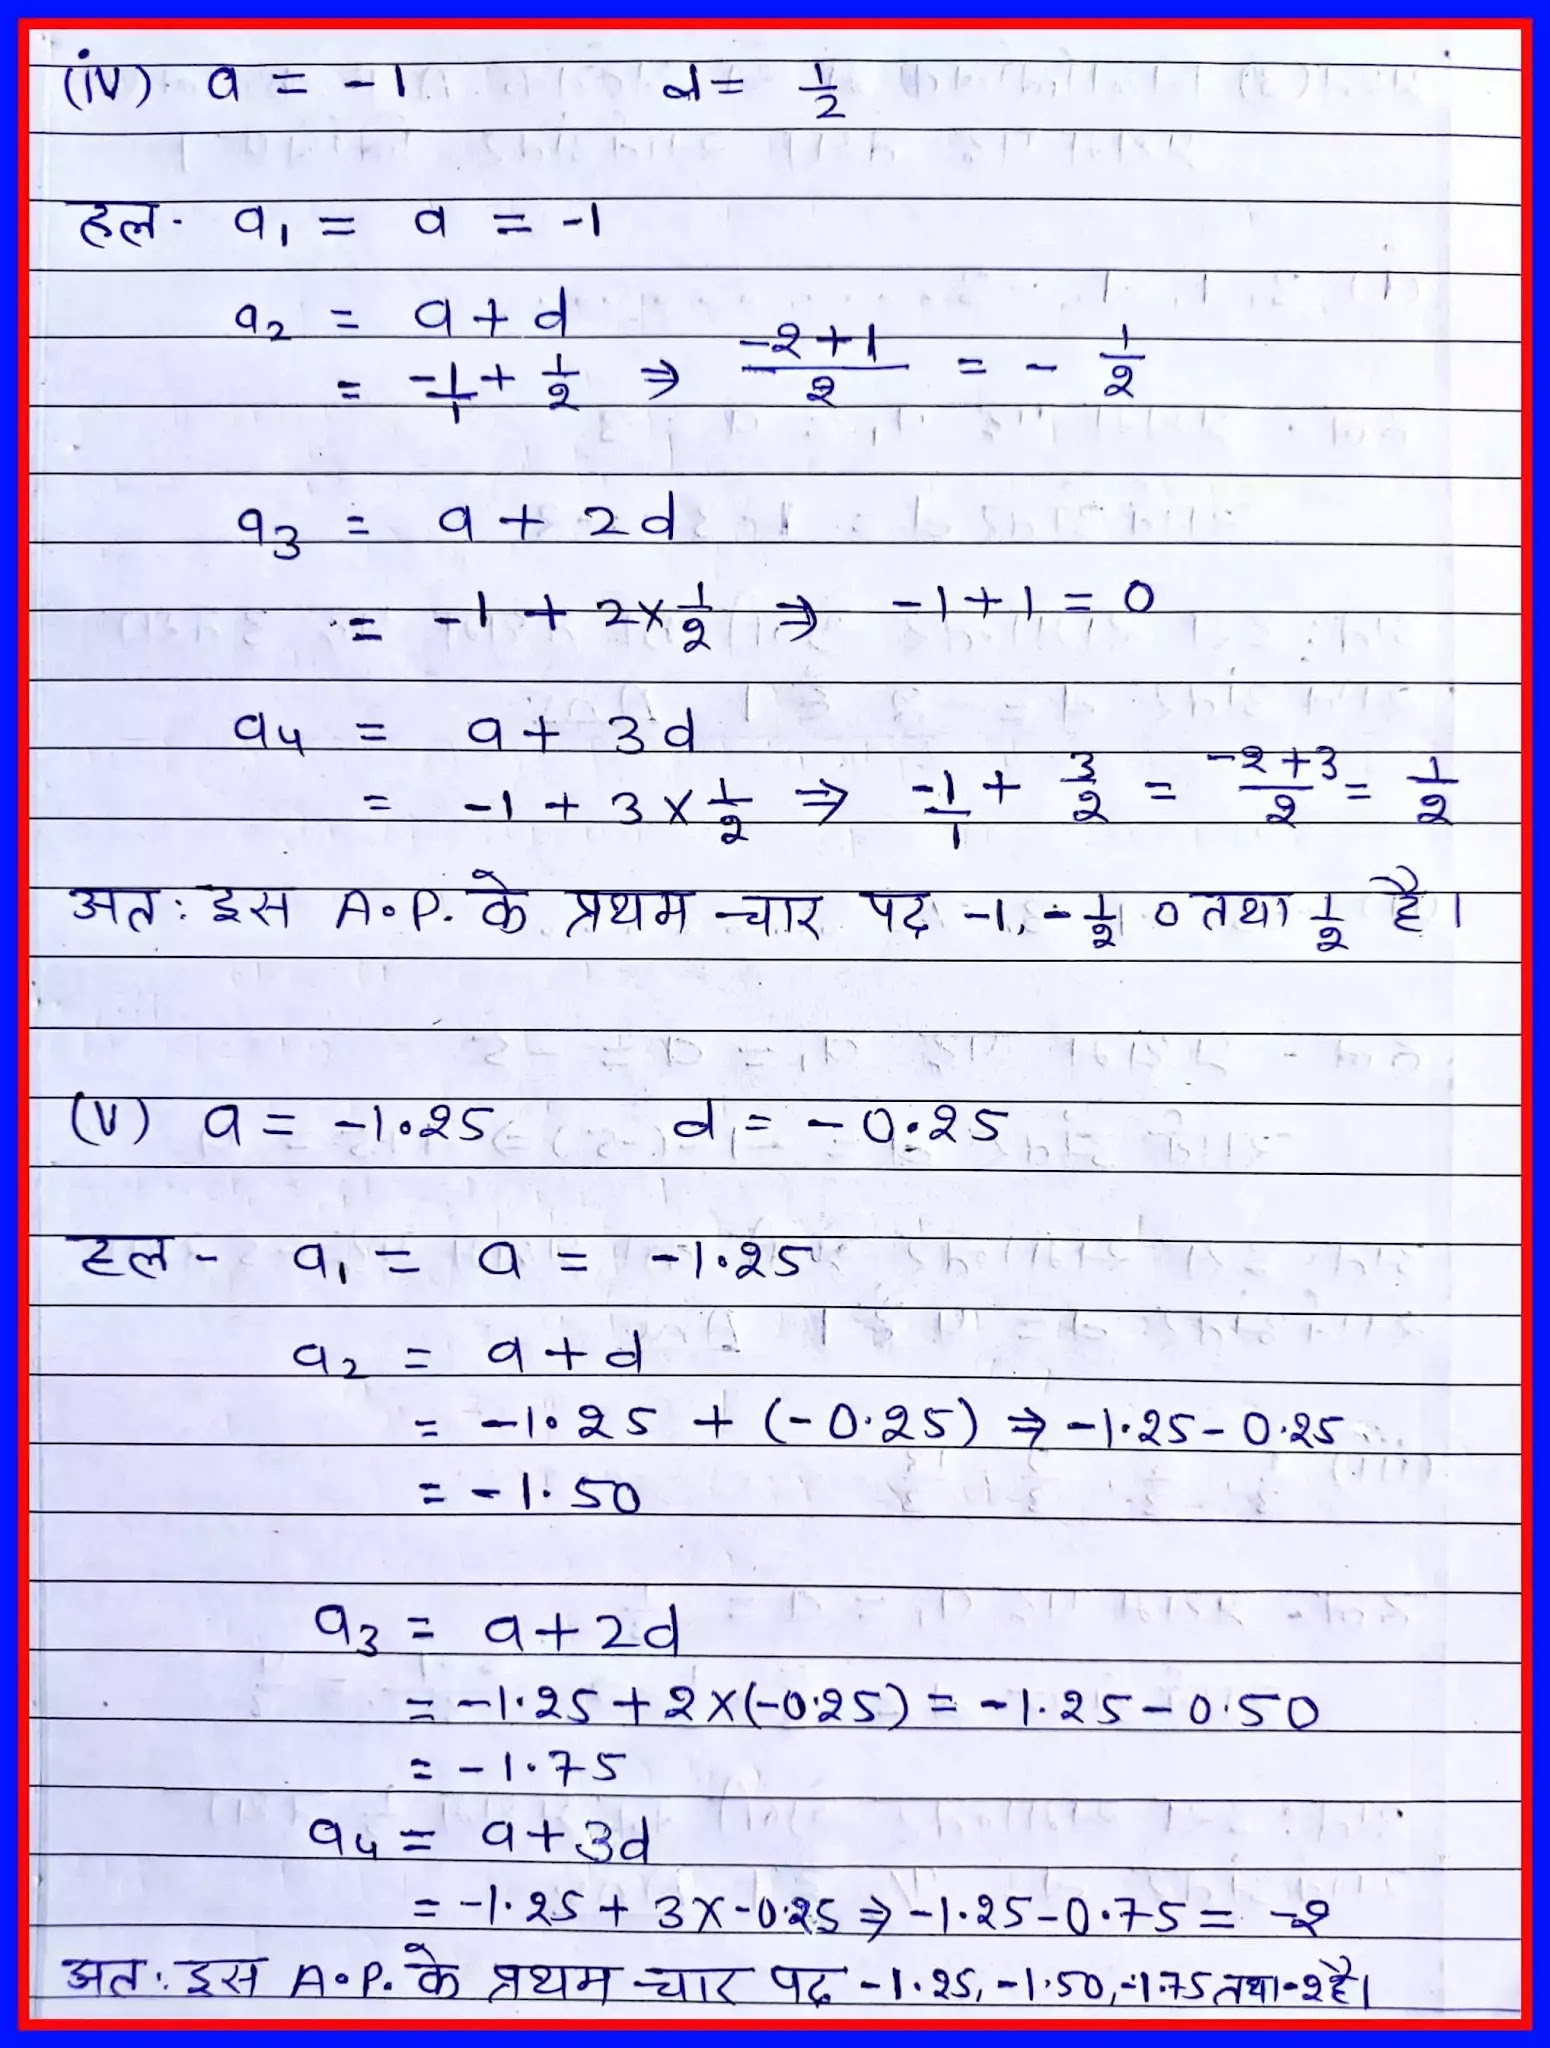 (iv) a = -1 d = 1/2
हल- a₁ = a = -1
a₂ = a + d
= -1/1 + 1/2 ⇒ (-2+1)/2 = - 1/2
a₃ = a + 2d
= -1 + 2 × 1/2 ⇒ -1 + 1 = 0
a₄ = a + 3d
= -1 + 3 × 1/2 ⇒ -1/1 + 3/2 = (-2+3)/2 = 1/2
अतः इस A.P. के प्रथम चार पद -1, -1/2, 0 तथा 1/2 है।
(v) a = -1.25 d = -0.25
हल- a₁ = a = -1.25
a₂ = a + d
= -1.25 + (-0.25) ⇒ -1.25 - 0.25
= -1.50
a₃ = a + 2d
= -1.25 + 2×(-0.25) = -1.25 - 0.50
= -1.75
a₄ = a + 3d
= -1.25 + 3 × -0.25 ⇒ -1.25 - 0.75 = -2
अतः इस A.P. के प्रथम चार पद -1.25, -1.50, -1.75 तथा -2 है।